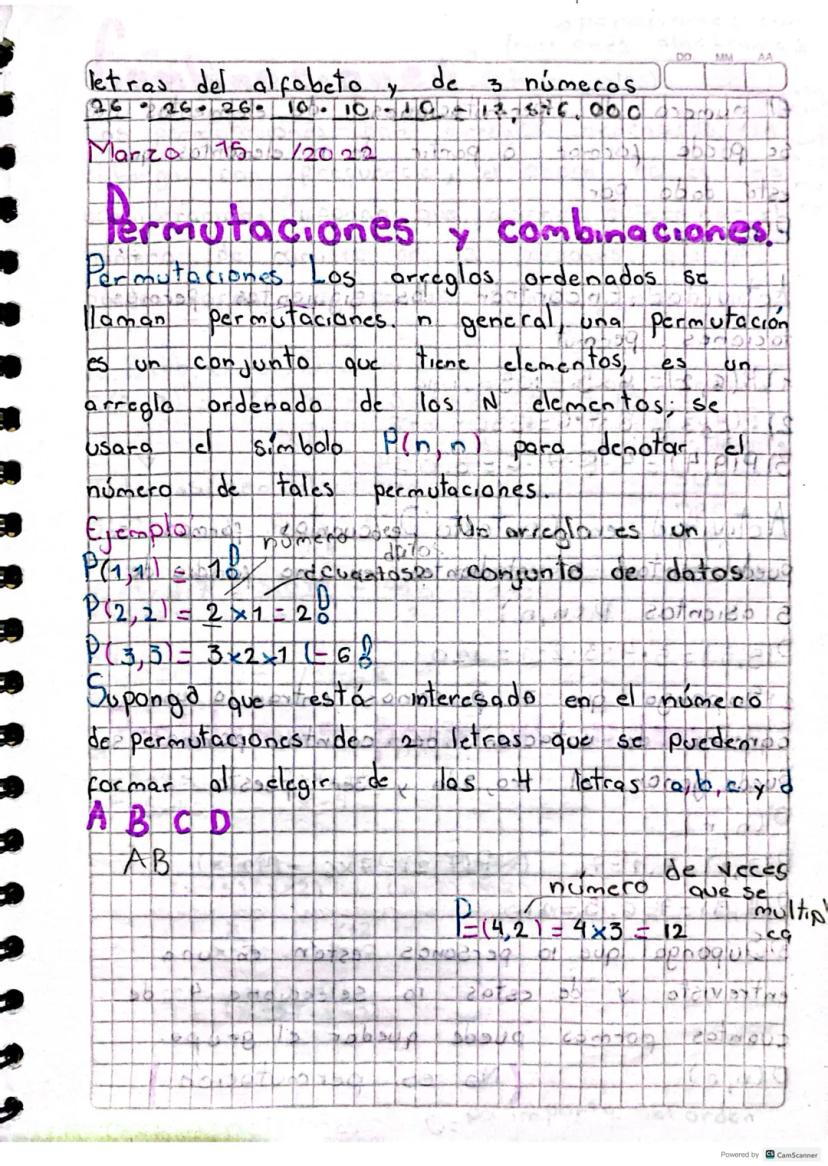 DD MM AA
letras del alfabeto y de 3 números
26 • 26 • 26 • 10 • 10 • 10 = 17,576.000
Marzo 15 /2022
Permutaciones y combinaciones.
Permutaciones Los arreglos ordenados se
llaman permutaciones. n general, una permutación
es un conjunto que tiene elementos, es un
arreglo ordenado de los N elementos; se
usara el símbolo P(n,n) para denotar el
número de tales permutaciones.
Ejemplo número datos Un arreglo es un
P(1,1) = 1! cuantos conjunto de datos
P(2,2) = 2x1 = 2!
P(3,3) = 3x2x1 = 6!
Suponga que está interesado en el número
de permutaciones de 2 letras que se pueden
formar al elegir de las 4 letras a, b, c y d
A B C D
AB
número de veces que se multiplica
P=(4,2) = 4x3 = 12
Powered by CS CamScanner